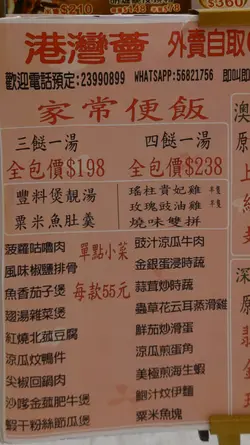 $210
$148
$178
$360
港灣薈 外賣自取
歡迎電話預定:23990899 WHATSAPP:56821756 即叫即
家常便飯
三餸一湯
全包價$198
四餸一湯
全包價$238
豐料煲靚湯
粟米魚肚羹
瑤柱貴妃雞 半隻
玫瑰豉油雞 半隻
燒味雙拼
單點小菜
每款55元
菠蘿咕嚕肉
風味椒鹽排骨
魚香茄子煲
翅湯雜菜煲
紅燒北菰豆腐
涼瓜炆鴨件
尖椒回鍋肉
沙嗲金菰肥牛煲
蝦干粉絲節瓜煲
豉汁涼瓜牛肉
金銀蛋浸時蔬
蒜茸炒時蔬
蟲草花云耳蒸滑雞
鮮茄炒滑蛋
涼瓜煎蛋角
美極煎海生蝦
鮑汁炆伊麵
粟米魚塊